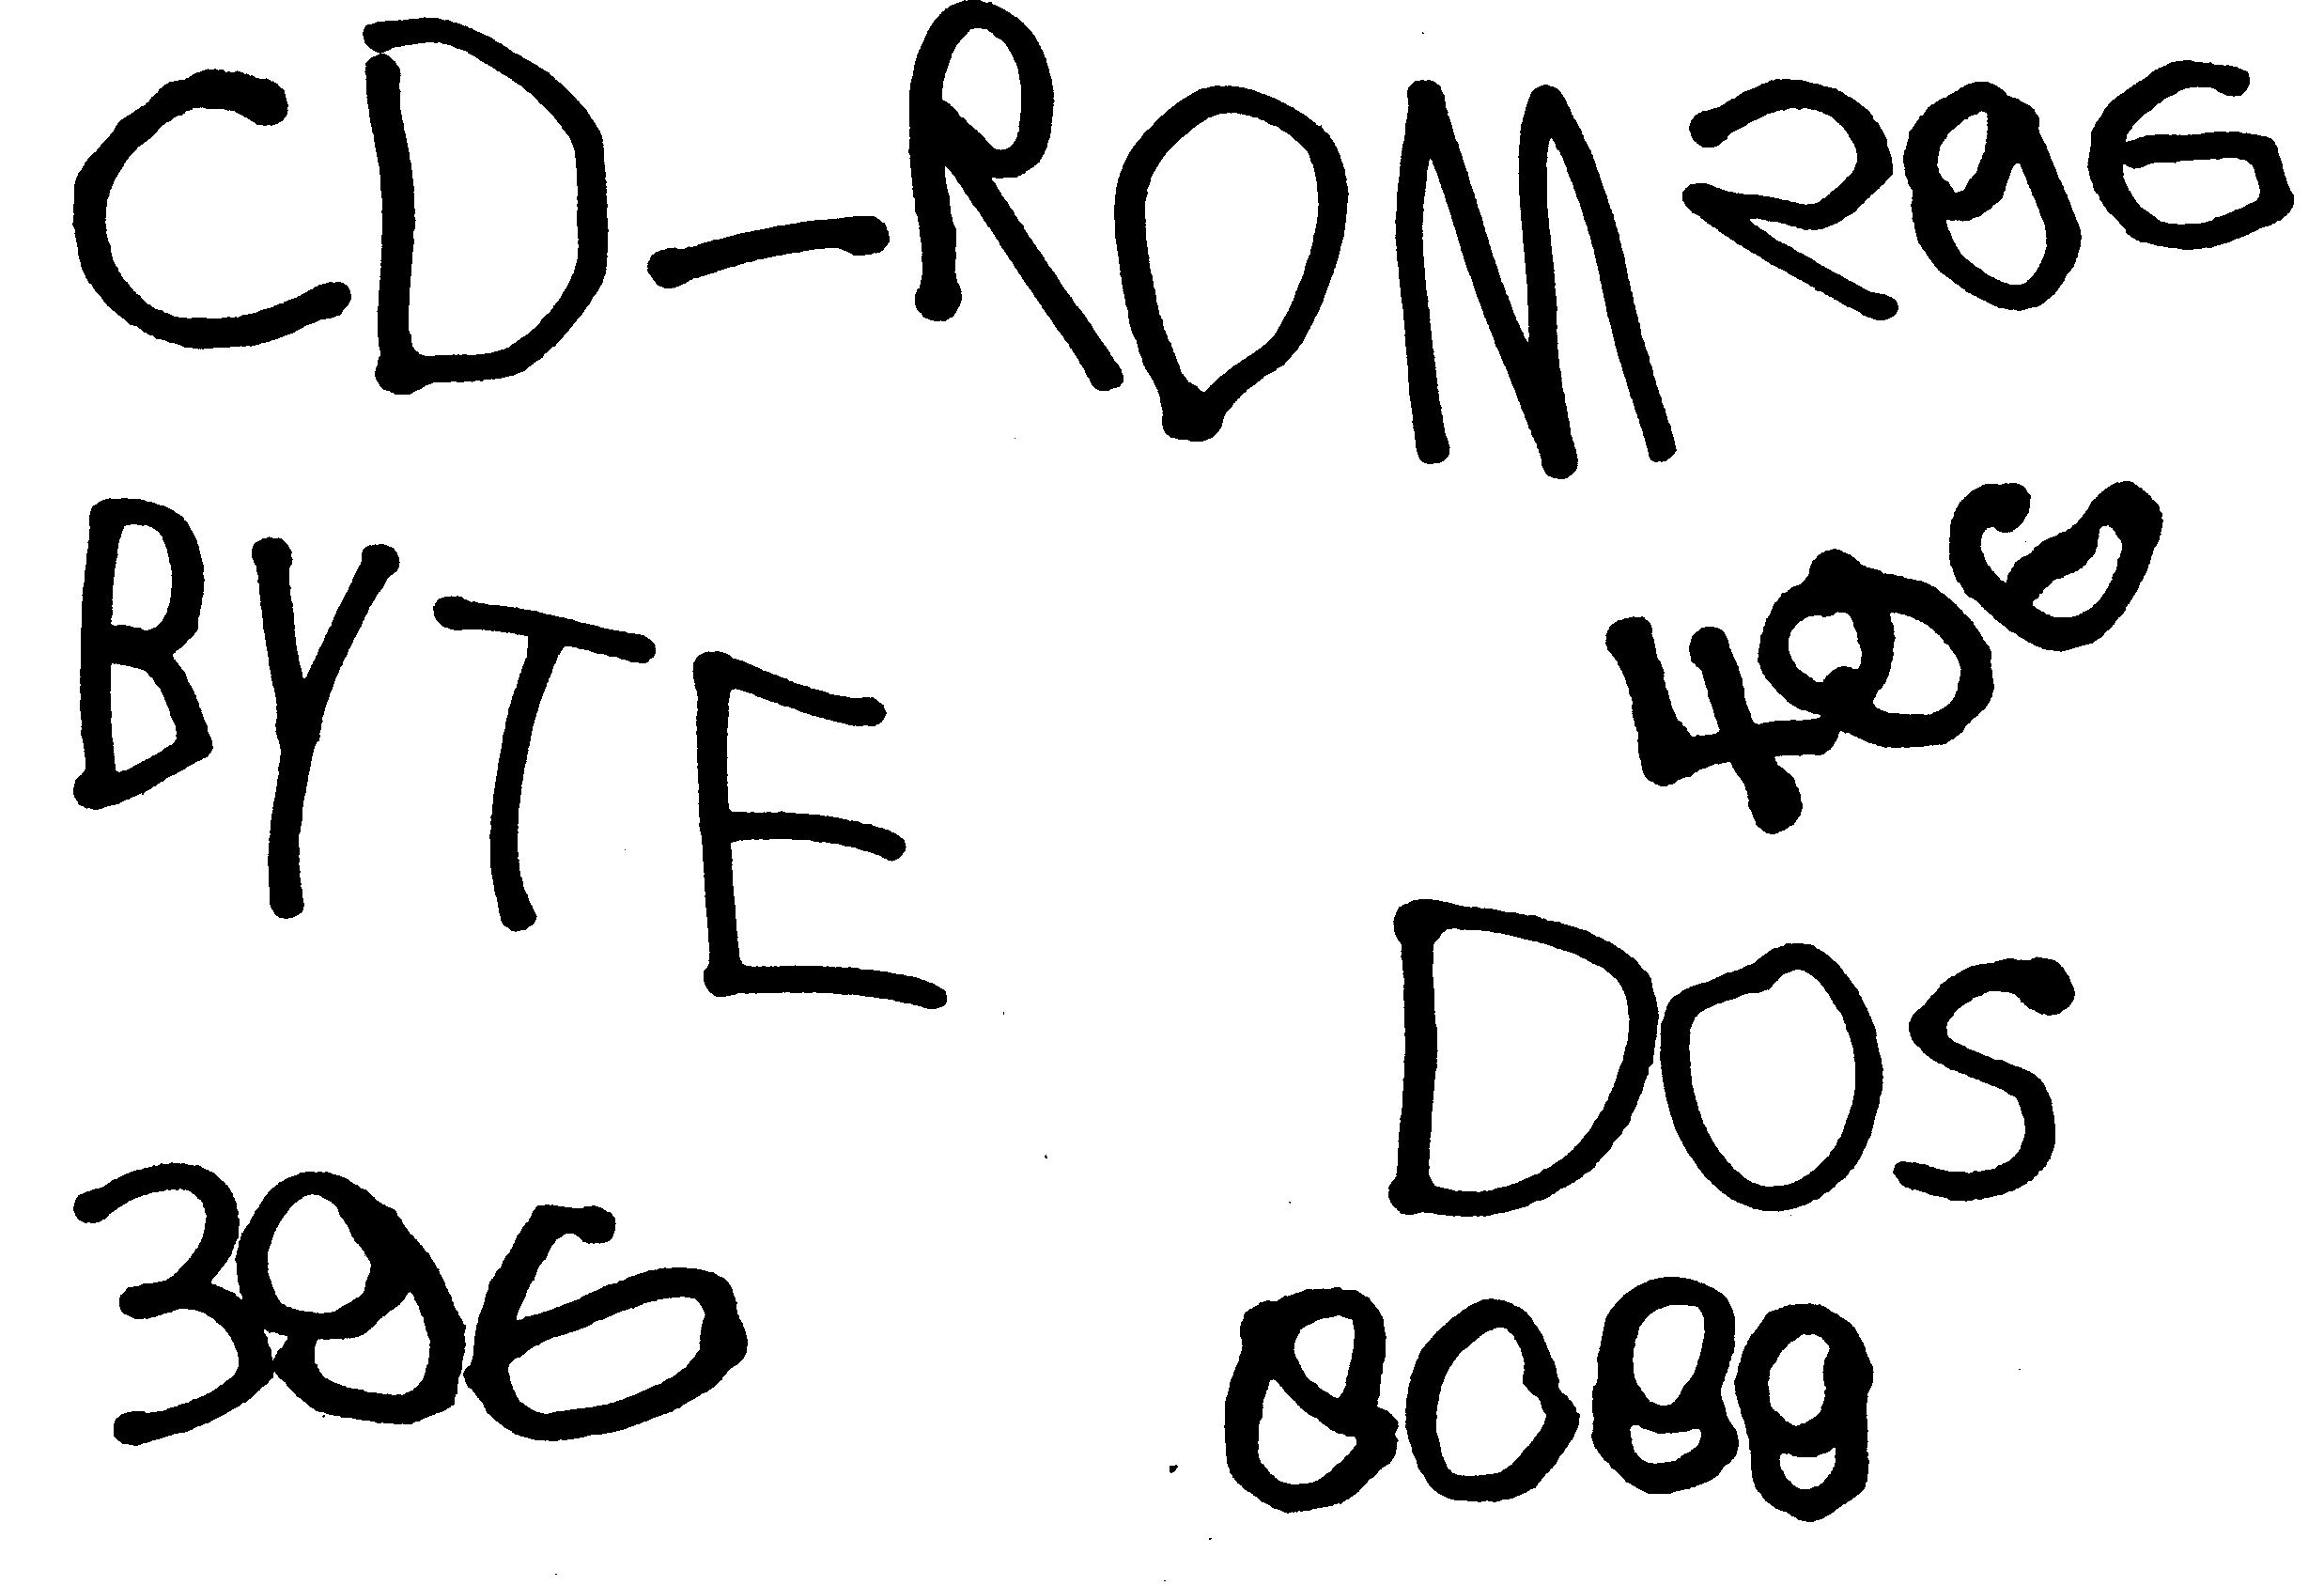 CD-ROM 286
BYTE
486
DOS
386
8088